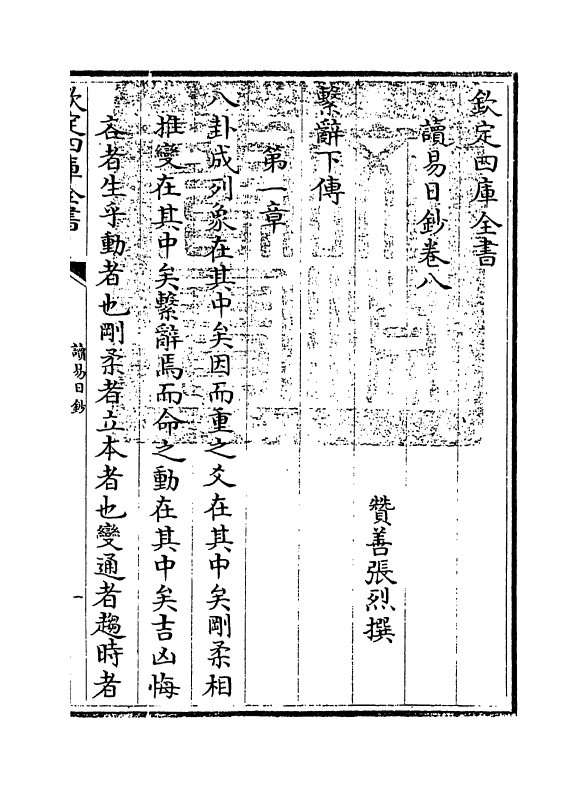 欽定四庫全書
讀易日鈔卷八
贊善張烈撰
繫辭下傳
第一章
八卦成列象在其中矣因而重之爻在其中矣剛柔相
推變在其中矣繫辭焉而命之動在其中矣吉凶悔
吝者生乎動者也剛柔者立本者也變通者趨時者
欽定四庫全書
讀易日鈔
一